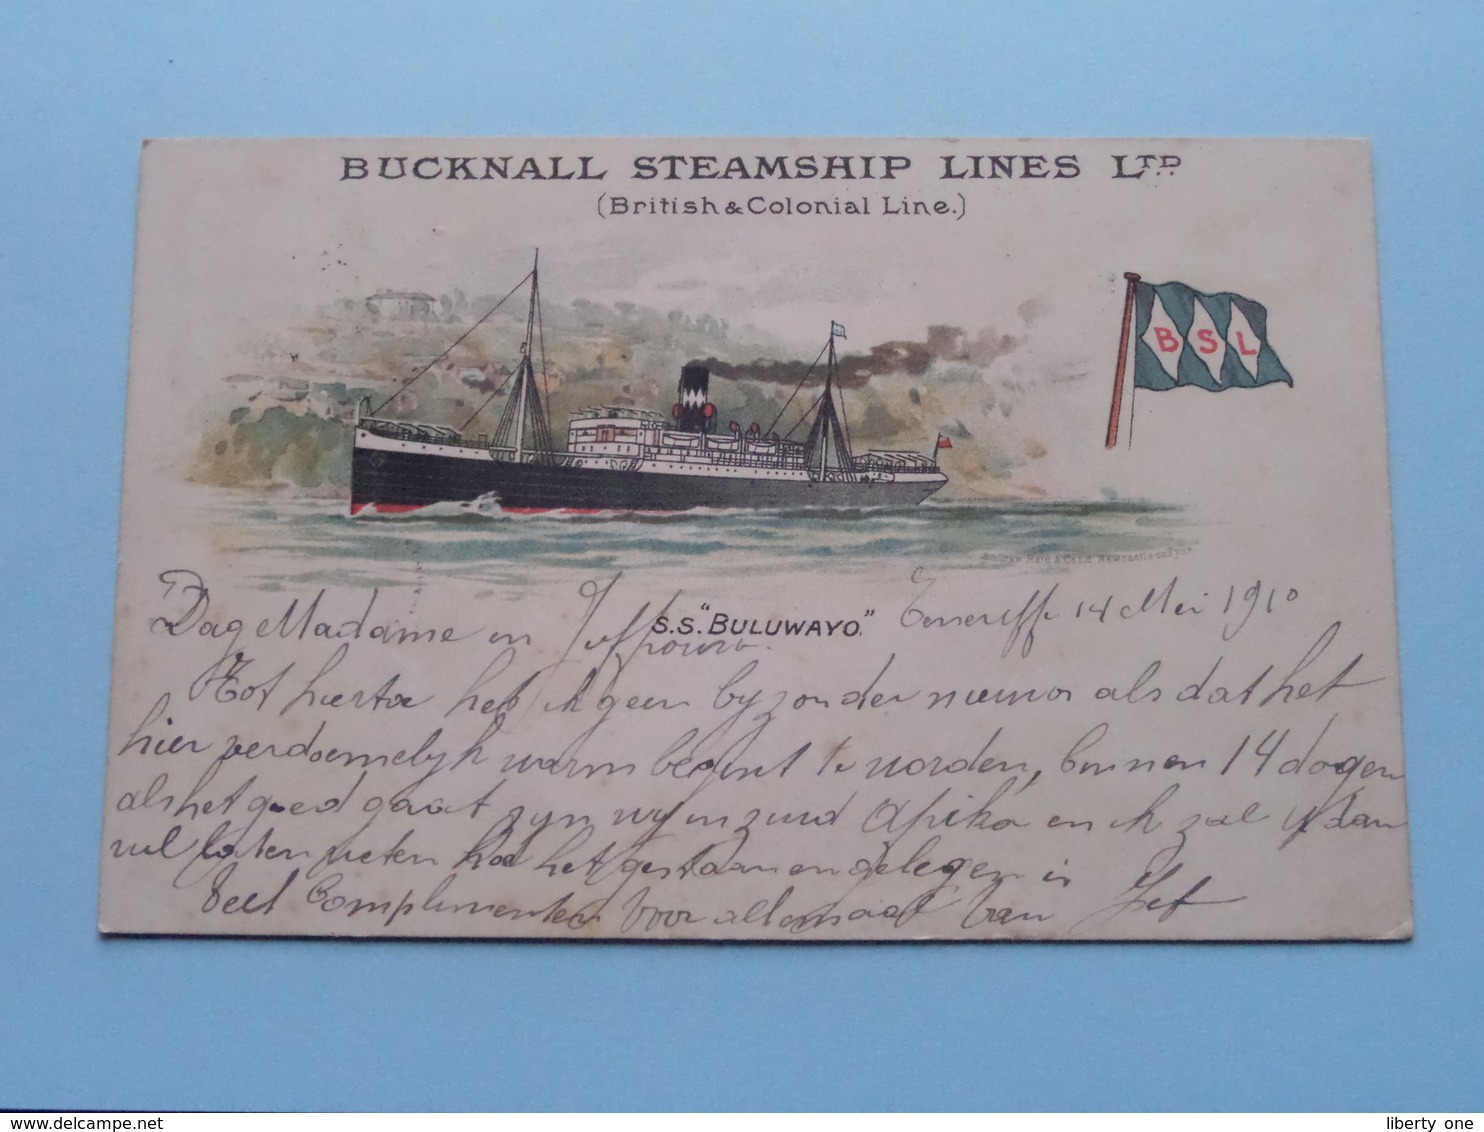 BUCKNALL STEAMSHIP LINES LTD.
(British & Colonial Line.)
B S L
Andrew Reid & Co Ld Newcastle on Tyne
S.S. "BULUWAYO."
Teneriffe 14 Mei 1910
Dag Madame en Juffrouw
Tot hiertoe heb ik geen byzonder nieuws als dat het
hier verdoemelyk warm begint te worden, binnen 14 dagen
als het goed gaat zyn wy in zuid Afrika en ik zal U dan
wel laten weten hoe het gestaan en gelegen is
Veel Complimenten voor allemaal van Jef
www.delcampe.net
liberty_one